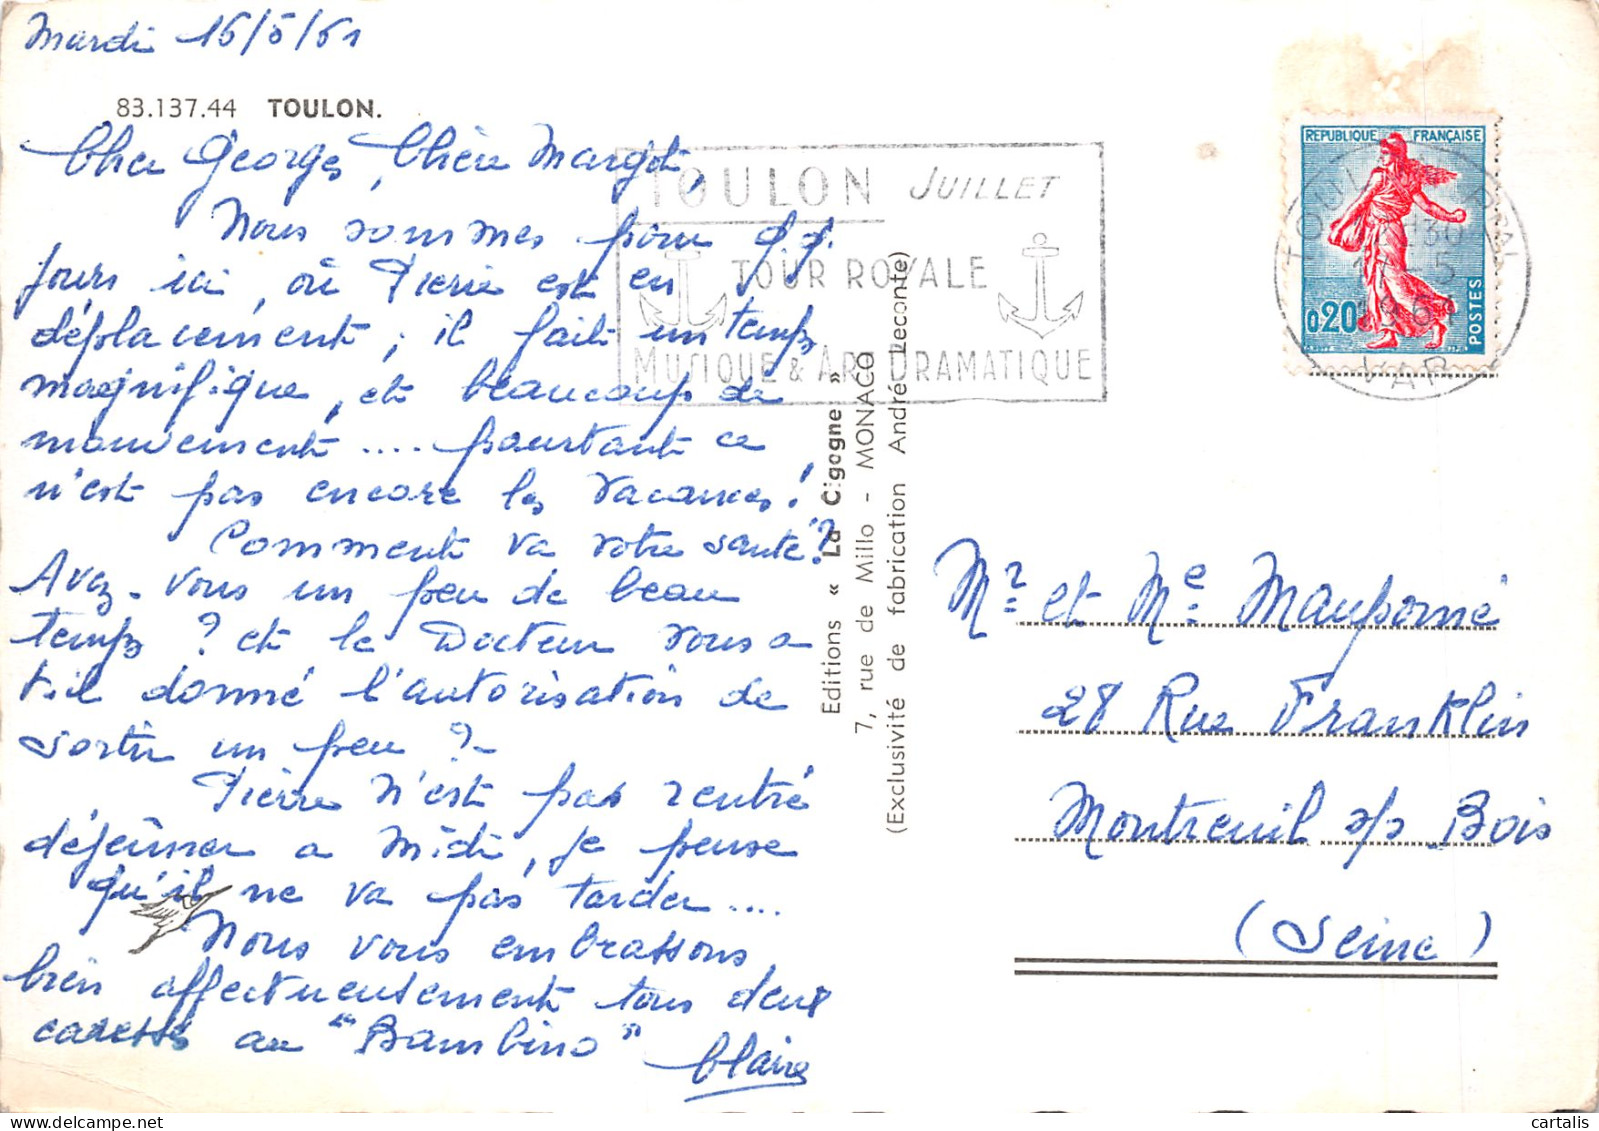 Mardi 16/5/61
83.137.44 TOULON.
Cher Georges, Chère Margot,
Nous sommes pour q.q.
jours ici, où Pierre est en
déplacement, il fait un temps
magnifique, et beaucoup de
mouvement .... pourtant ce
n'est pas encore les vacances!
Comment va votre santé?
Avez-vous un peu de beau
temps ? et le Docteur vous a
t-il donné l'autorisation de
sortir un peu ?-
Pierre n'est pas rentré
déjeûner a midi, je pense
qu'il ne va pas tarder ....
Nous vous embrassons
bien affectueusement tous deux
caresses au "Bambino" Claire
TOULON JUILLET
TOUR ROYALE
MUSIQUE & ART DRAMATIQUE
Editions « La Cigogne »
7, rue de Millo - MONACO
(Exclusivité de fabrication André Leconte)
REPUBLIQUE FRANÇAISE
0,20
POSTES
VAR
Mr et Me Mauporné
28 Rue Franklin
Montreuil s/s Bois
(Seine)
cartalis
delcampe.net